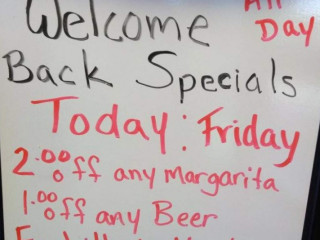 Welcome
All Day
Back Specials
Today: Friday
2.00 off any Margarita
1.00 off any Beer